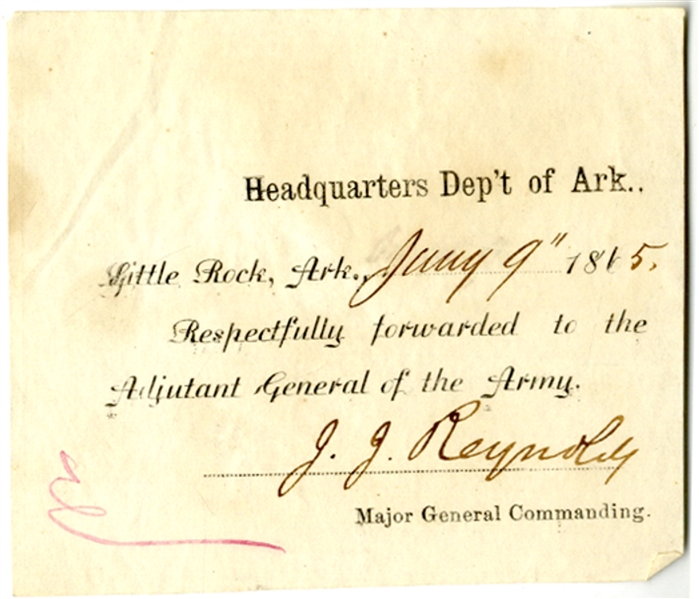 Headquarters Dep't of Ark..
Little Rock, Ark., Jany 9" 1865.
Respectfully forwarded to the
Adjutant General of the Army.
J. J. Reynolds
Major General Commanding.